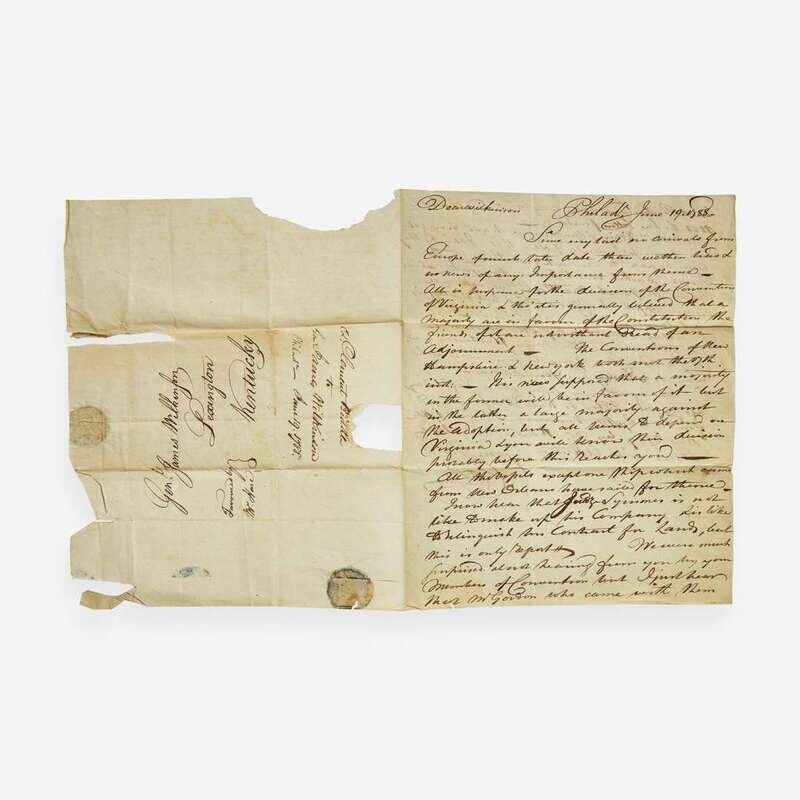 Dear Wilkinson Philad. June 19. 1788
Since my last no arrivals from
Europe of much later date than
no news of any Importance from thence —
All is suspense for the decision of the Convention
of Virginia & tho' it is generally believed that a
majority are in favour of the Constitution the
friends of it are not without Dread of an
Adjournment — The Conventions of New
Hampshire & New York both met the 17th
inst. — It is now supposed that a majority
in the former will be in favour of it but
in the latter a large majority against
the Adoption, but all seems to depend on
Virginia & you will know this decision
probably before this reaches you —
All the Vessels except one Ship which came
from New Orleans have sailed for thence —
I now hear that Judge Symmes is not
like to make up his Company & is like
to relinquish his Contract for Lands, but
this is only report — We were much
surprised at not hearing from you by your
Members of Convention but I just hear
that Mr. Gordon who came with them
Genl. James Wilkinson
Lexington
Kentucky
Favored by
to
Gen James Wilkinson
June 19 1788